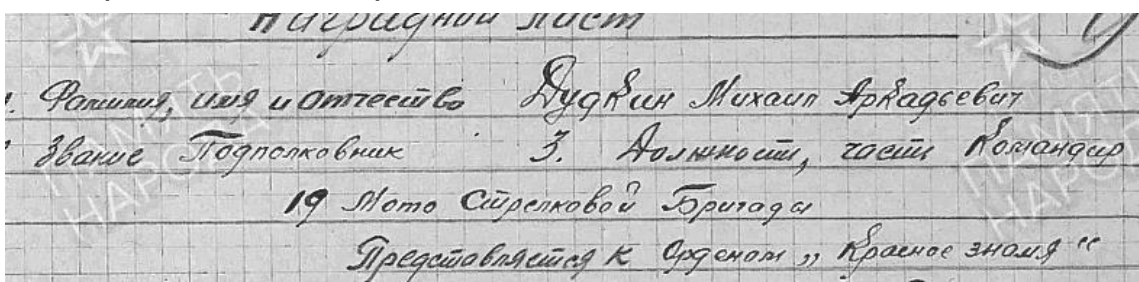 Наградной лист
1. Фамилия, имя и отчество Дудкин Михаил Аркадьевич
Звание Подполковник 3. Должность, часть Командир
19 Мото Стрелковой Бригады
Представляется к Орденом „Красное знамя“
ПАМЯТЬ НАРОДА
ПАМЯТЬ НАРОДА